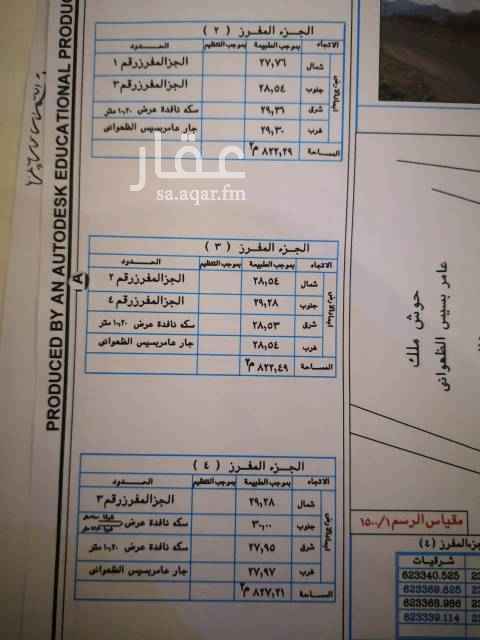 PRODUCED BY AN AUTODESK EDUCATIONAL PRODUC
A
الجزء المفرز ( ٢ )
الاتجاه بموجب الطبيعة بموجب التنظيم الحدود
شمال ٢٧,٧٦ الجزالمفرزرقم ١
جنوب ٢٨,٥٤ الجزالمفرزرقم ٣
شرق ٢٩,٣٦ سكه نافدة عرض ١٠,٢٠ متر
غرب ٢٩,٣٠ جار عامربسيس الظهوانى
المساحة ٨٢٢,٢٩ م٢
عقار
sa.aqar.fm
الجزء المفرز ( ٣ )
الاتجاه بموجب الطبيعة بموجب التنظيم الحدود
شمال ٢٨,٥٤ الجزالمفرزرقم ٢
جنوب ٢٩,٢٨ الجزالمفرزرقم ٤
شرق ٢٨,٥٣ سكه نافدة عرض ١٠,٢٠ متر
غرب ٢٨,٥٤ جار عامربسيس الظهوانى
المساحة ٨٢٢,٤٩ م٢
الجزء المفرز ( ٤ )
الاتجاه بموجب الطبيعة بموجب التنظيم الحدود
شمال ٢٩,٢٨ الجزالمفرزرقم ٣
جنوب ٣٠,٠٠ سكه نافدة عرض
شرق ٢٧,٩٥ سكه نافدة عرض ١٠,٢٠ متر
غرب ٢٧,٩٧ جار عامربسيس الظهوانى
المساحة ٨٢٧,٢١ م٢
حوش ملك
عامر بسيس الظهوانى
مقياس الرسم ١/١٥٠٠
المفرز (٤)
شرقيات
623340.525
623369.625
623368.986
623339.114